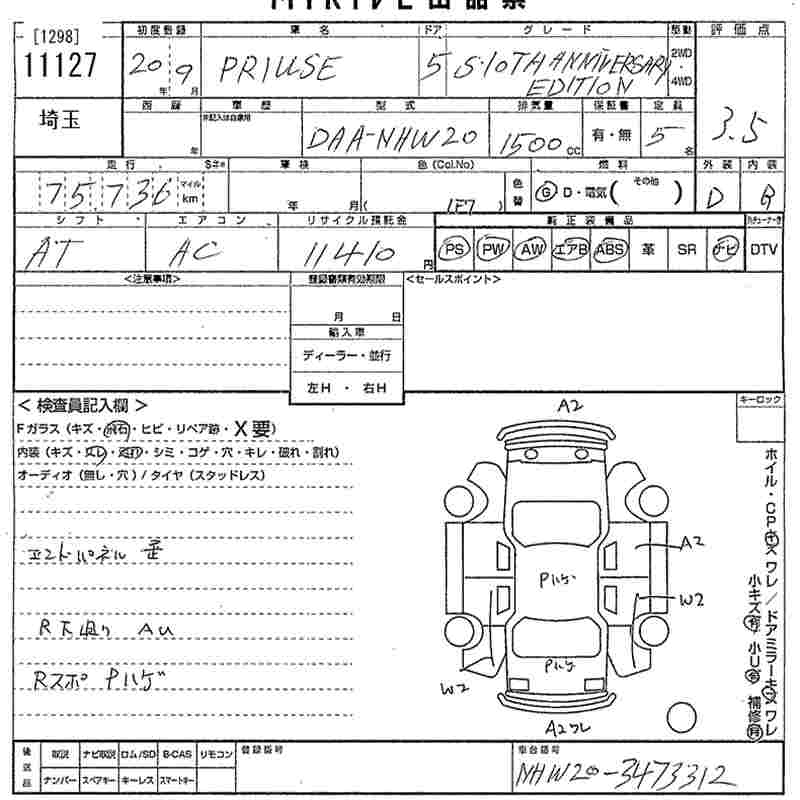 [1298]
11127
埼玉
初度登録 車名 ドア グレード 駆動 評価点
20年 9月 PRIUSE 5 S・10TH ANNIVERSARY EDITION 2WD・4WD 3.5
西暦 車歴 型式 排気量 保証書 定員
年 非記入は自家用 DAA-NHW20 1500cc 有・無 5名
走行 車検 色(Col.No) 燃料 外装 内装
75,736 マイル km 年 月 ( 1F7 ) 色替 G D・電気( その他 ) D B
シフト エアコン リサイクル預託金 純正装備品
AT AC 11410円 PS PW AW エアB ABS 革 SR ナビ DTV
<注意事項> 登録書類有効期限 <セールスポイント>
月 日
輸入車
ディーラー・並行
左H・右H
<検査員記入欄> A2 キーロック
Fガラス(キズ・飛石・ヒビ・リペア跡・X要)
内装(キズ・スレ・・シミ・コゲ・穴・キレ・破れ・割れ)
オーディオ(無し・穴)/タイヤ(スタッドレス)
エンドパネル
R下廻り AU
Rスポ Pハゲ
A2
Pハゲ
W2
Pハゲ
W2
A2ワレ
ホイル・CPキズワレ/ドアミラーキズワレ
小キズ有 小U有 補修有
後送品 取説 ナビ取説 ロム/SD B-CAS リモコン 登録番号 車台番号
ナンバー スペアキー キーレス スマートキー NHW20-3473312